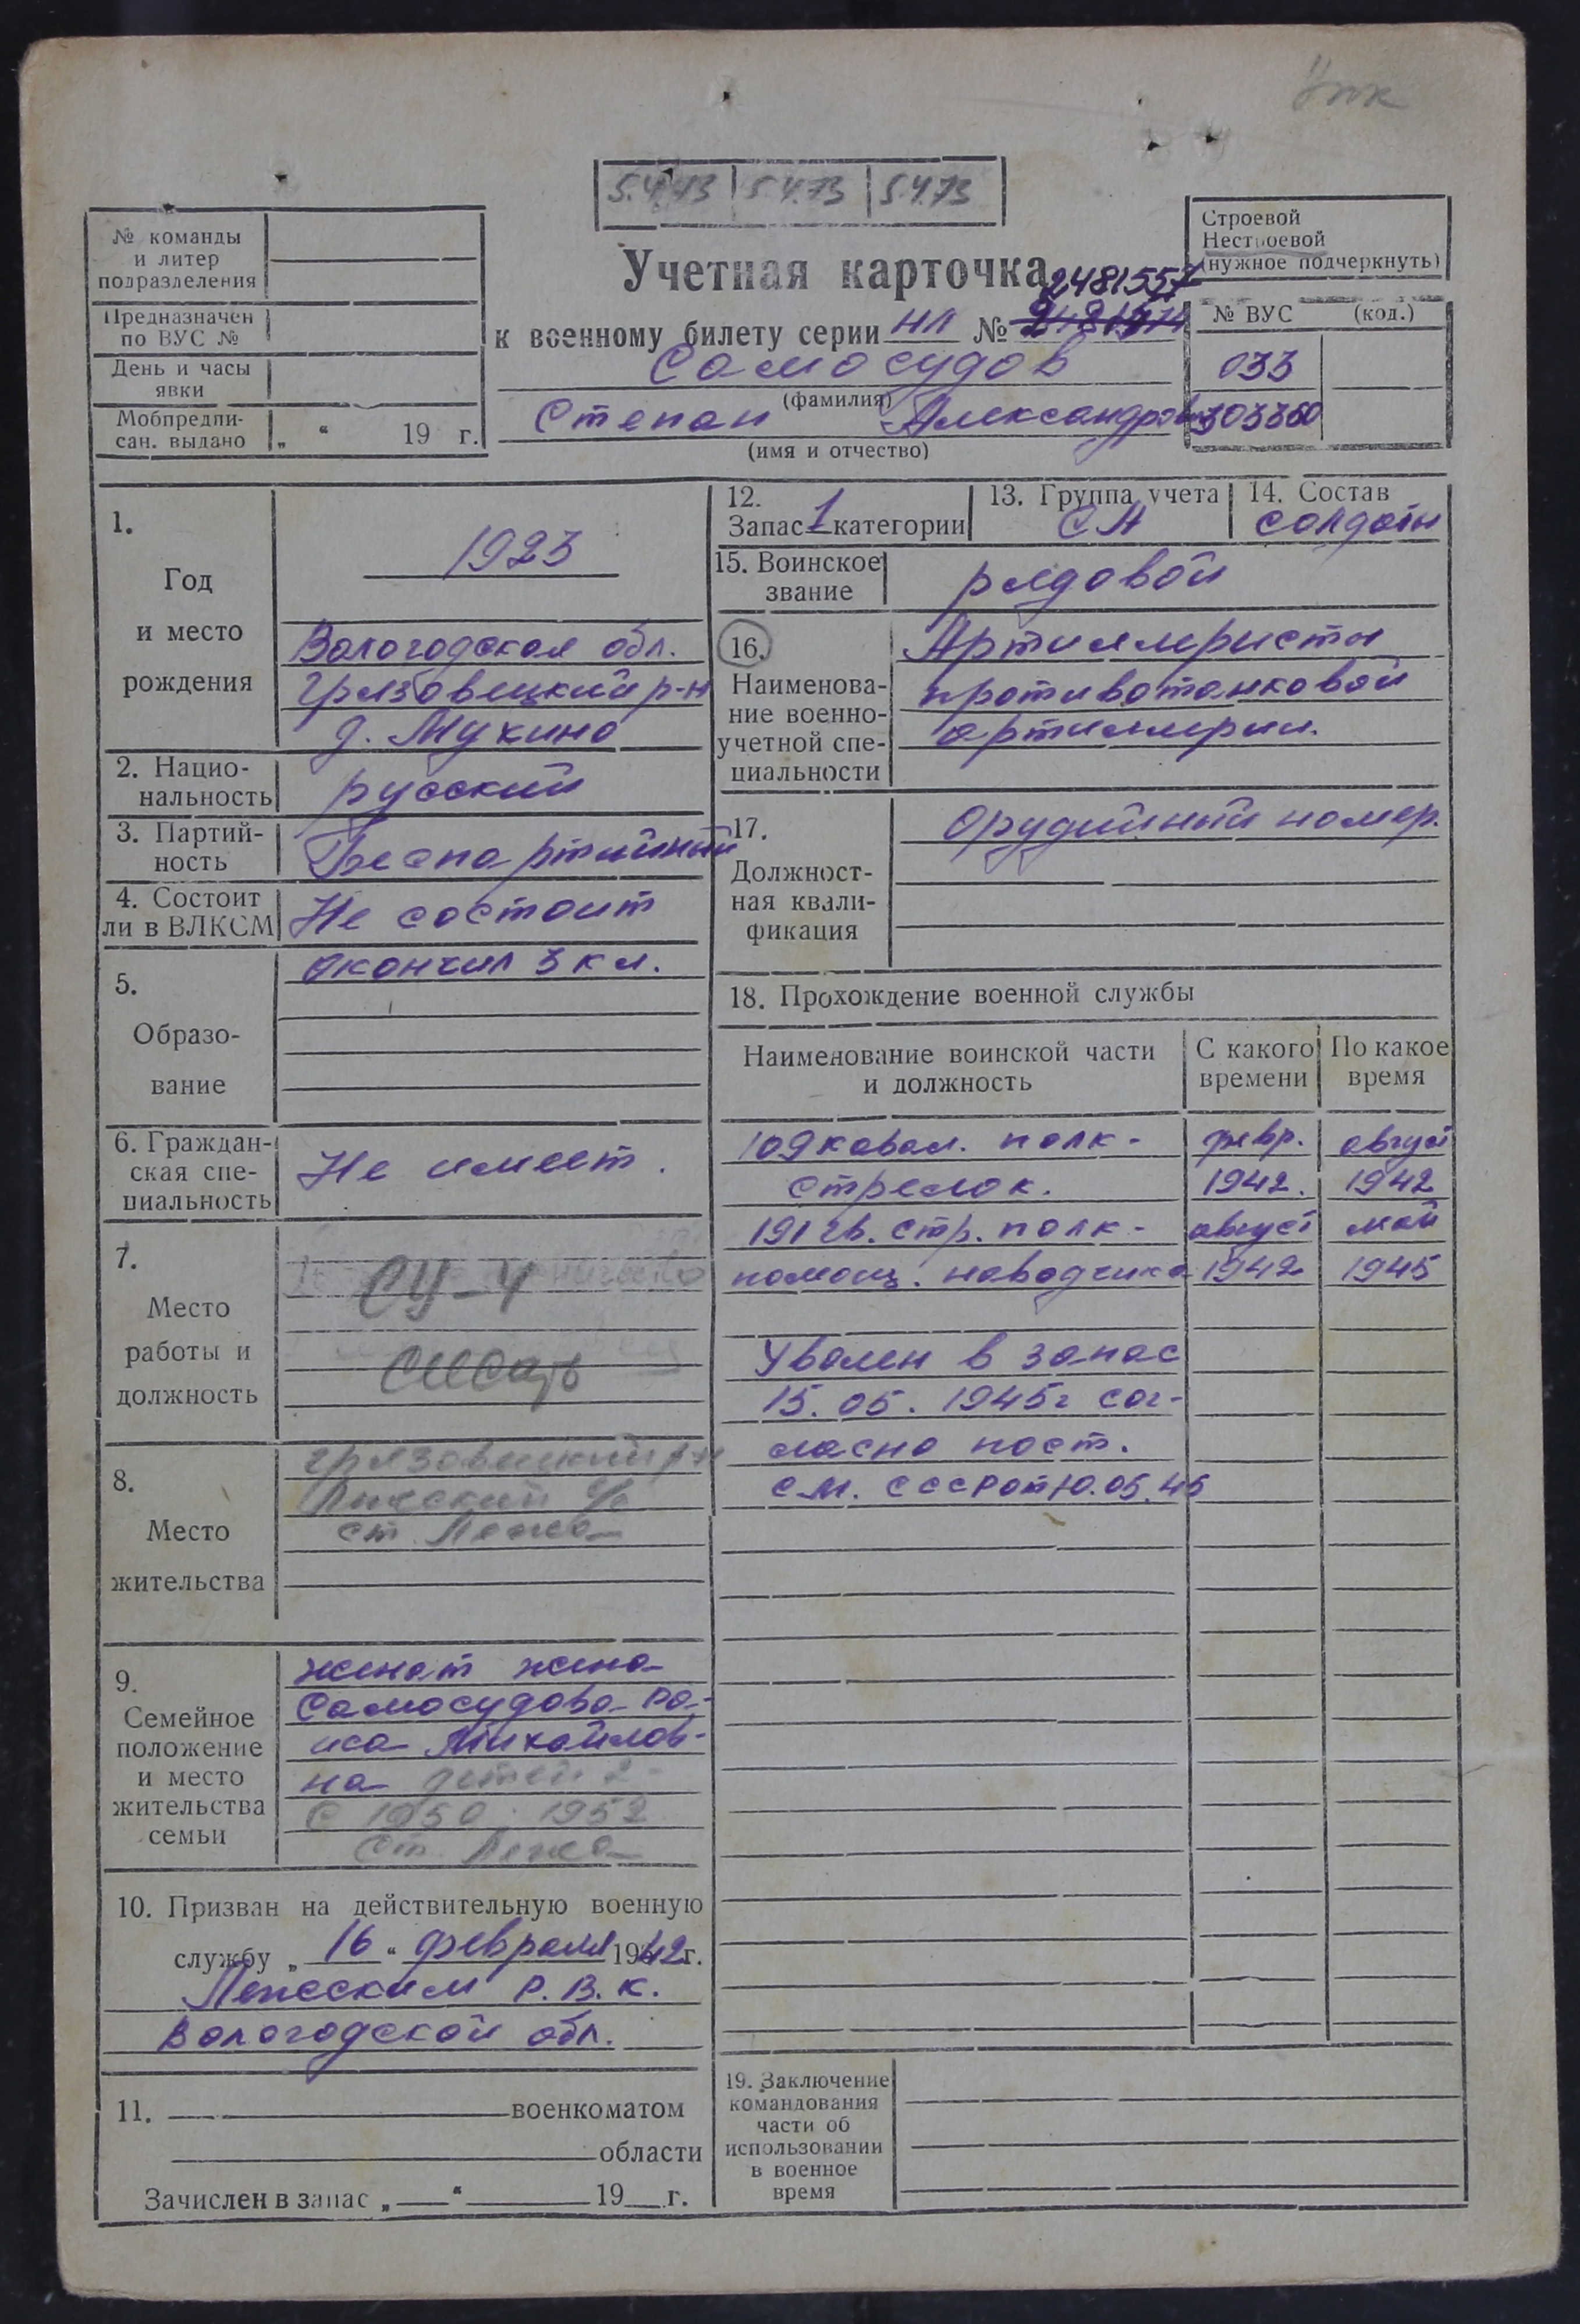 Упк
5.4.73 5.4.73 5.4.73
№ команды
и литер
подразделения
Предназначен
по ВУС №
День и часы
явки
Мобпредпи-
сан. выдано „ “ 19 г.
Учетная карточка
2481557
к военному билету серии НЛ №
Самосудов
(фамилия)
Степан Александров
(имя и отчество)
Строевой
Нестроевой
(нужное подчеркнуть)
№ ВУС (код.)
033
303360
1.
Год
и место
рождения
1923
Вологодская обл.
Грязовецкий р-н
д. Мухино
2. Нацио-
нальность
русский
3. Партий-
ность
Беспартийный
4. Состоит
ли в ВЛКСМ
Не состоит
5.
Образо-
вание
окончил 3 кл.
6. Граждан-
ская спе-
циальность
Не имеет.
7.
Место
работы и
должность
СУ-4
слесарь
8.
Место
жительства
Грязовецкий р-н
Лежский с/с
ст. Лежа
9.
Семейное
положение
и место
жительства
семьи
женат жена
Самосудова Ра-
иса Михайлов-
на детей 2-
с 1950 1952
ст. Лежа
10. Призван на действительную военную
службу „ 16 “ февраля 1942 г.
Лежским Р.В.К.
Вологодской обл.
11. военкоматом
области
Зачислен в запас „ “ 19 г.
12.
Запас 1 категории
13. Группа учета
СА
14. Состав
солдаты
15. Воинское
звание
рядовой
16.
Наименова-
ние военно-
учетной спе-
циальности
Артиллеристы
противотанковой
артиллерии.
17.
Должност-
ная квали-
фикация
Орудийный номер.
18. Прохождение военной службы
Наименование воинской части
и должность
С какого
времени
По какое
время
109 кавал. полк - февр. август
стрелок. 1942. 1942
191 гв. стр. полк - август май
помощ. наводчика 1942 1945
Уволен в запас
15.05.1945г сог-
ласно пост.
С.М. СССР от 10.05.45
19. Заключение
командования
части об
использовании
в военное
время